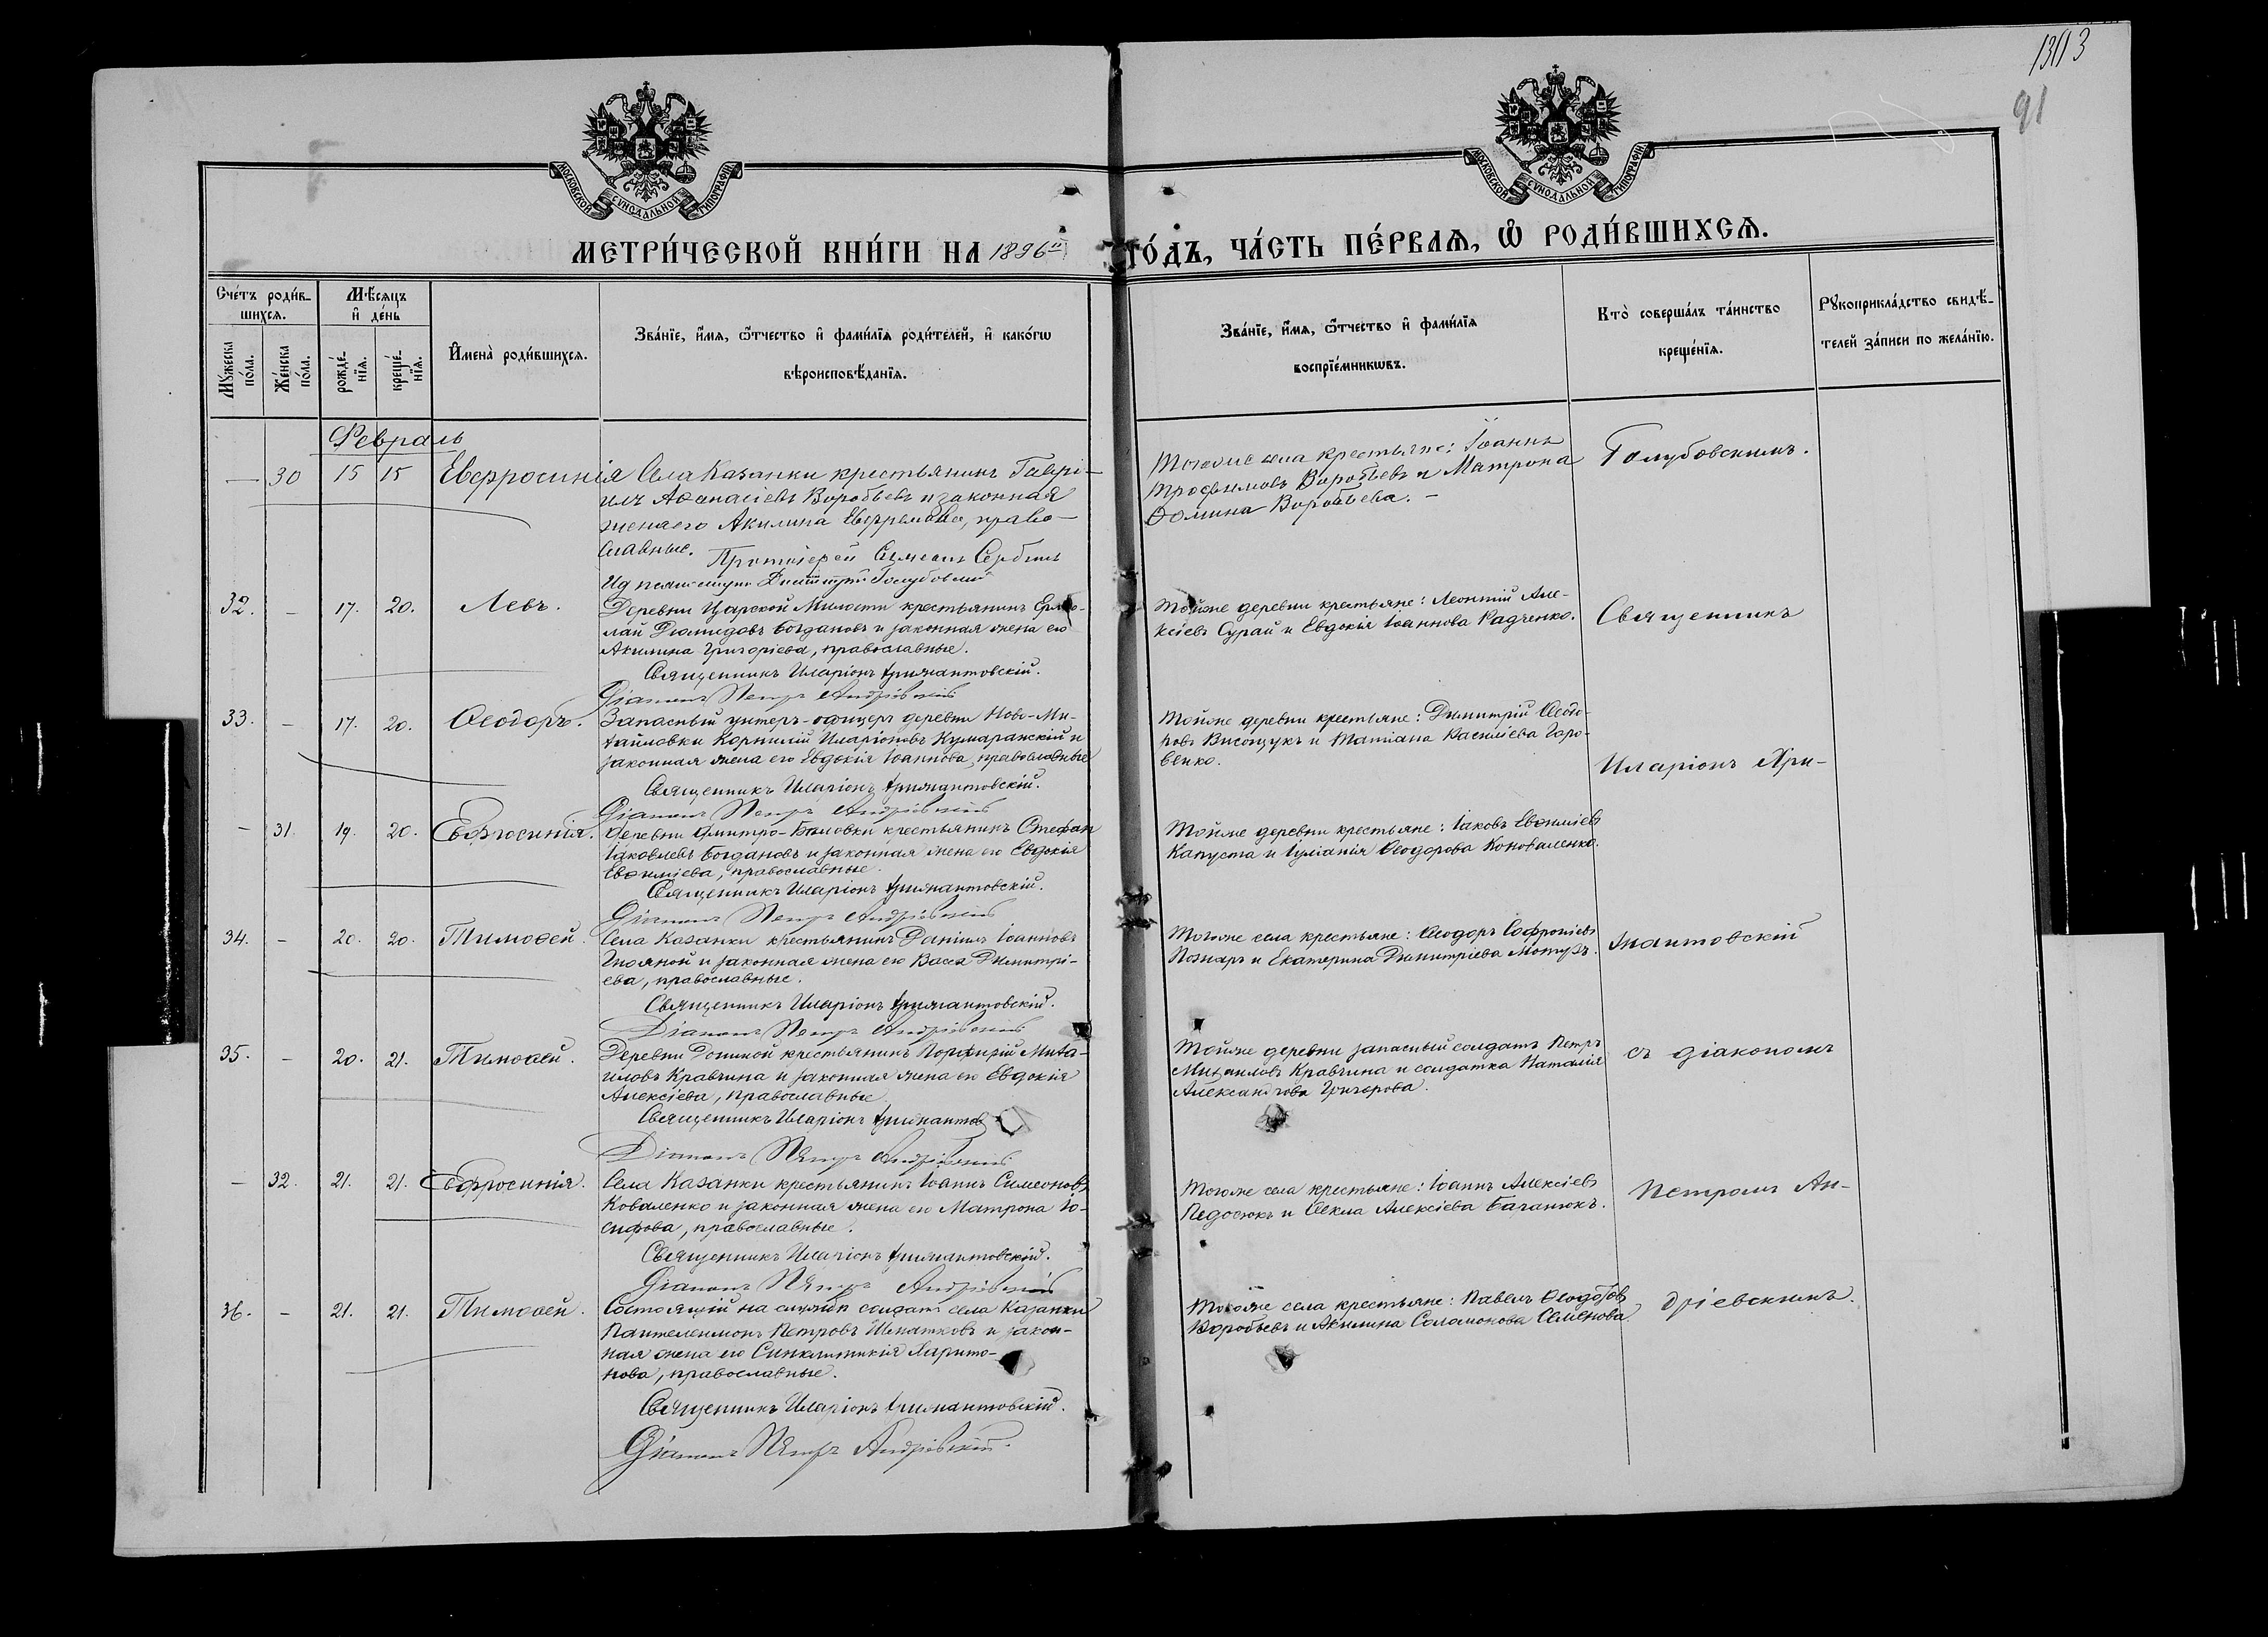 1313
91
МОСКОВСКОЙ СУНОДАЛЬНОЙ ТИПОГРАФІИ
МОСКОВСКОЙ СУНОДАЛЬНОЙ ТИПОГРАФІИ
МЕТРИ́ЧЕСКОЙ КНИ́ГИ НА 1896й ГО́ДЪ, ЧА́СТЬ ПЕ́РВАѦ, Ѡ РОДИ́ВШИХСѦ.
Сче́тъ роди́в-
шихсѧ.
Мѣ́сѧцъ
и҆ де́нь
Мꙋ́жеска по́ла.
Же́нска по́ла.
рожде́нїѧ.
креще́нїѧ.
И҆мена̀ роди́вшихсѧ.
Зва́нїе, и҆́мѧ, ѻ҆́тчество и҆ фами́лїѧ роди́телей, и҆ како́гѡ
вѣроисповѣ́данїѧ.
Зва́нїе, и҆́мѧ, ѻ҆́тчество и҆ фами́лїѧ
воспрїе́мникѡвъ.
Кто̀ соверша́лъ та́инство
креще́нїѧ.
Рꙋкоприкла́дство свидѣ́-
телей за́писи по жела́нїю.
Февраль
— 30 15 15 Евфросинія Села Казанки крестьянинъ Гаврі-
илъ Аѳанасіевъ Воробьевъ и законная
жена его Акилина Евфремова, право-
славные.
Протоіерей Сербинъ
Голубовскій
Тогоже села крестьяне: Іоаннъ
Трофимовъ Воробьевъ и Матрона
Ѳомина Воробьева. –
Голубовскимъ.
32. – 17. 20. Левъ. Деревни Царской Милости крестьянинъ Ермо-
лай Діомидовъ Богдановъ и законная жена его
Акилина Григоріева, православные.
Священникъ Иларіонъ Крижантовскій.
Діаконъ Петръ Андріевскій
Тойже деревни крестьяне: Леонтій Але-
ксіевъ Сурай и Евдокія Іоаннова Радченко.
Священникъ
33. – 17. 20. Ѳеодоръ. Запасный унтеръ-офицеръ деревни Ново-Ми-
хайловки Корнилій Иларіоновъ Кумаранскій и
законная жена его Евдокія Іоаннова, православные
Священникъ Иларіонъ Крижантовскій.
Діаконъ Петръ Андріевскій
Тойже деревни крестьяне: Димитрій Ѳеодо-
ровъ Високчукъ и Татіана Василіева Горо-
венко.
Иларіонъ Кри-
– 31. 19. 20. Евфросинія. Деревни Дмитро-Бѣловки крестьянинъ Стефан
Іаковлевъ Богдановъ и законная жена его Евдокія
Евѳиміева, православные.
Священникъ Иларіонъ Крижантовскій.
Діаконъ Петръ Андріевскій
Тойже деревни крестьяне: Іаковъ Евѳиміевъ
Капуста и Іуліанія Ѳеодорова Коноваленко.
34. – 20. 20. Тимоѳей. Села Казанки крестьянинъ Даніилъ Іоанновъ
Гнояной и законная жена его Васса Димитрі-
ева, православные.
Священникъ Иларіонъ Крижантовскій.
Діаконъ Петръ Андріевскій
Тогоже села крестьяне: Ѳеодоръ Софроніевъ
Пожаръ и Екатерина Димитріева Мотузъ.
жантовскій
35. – 20. 21. Тимоѳей. Деревни Доткой крестьянинъ Порфирій Миха-
иловъ Кравчина и законная жена его Евдокія
Алексіева, православные
Священникъ Иларіонъ Крижантов
Діаконъ Петръ Андріевскій
Тойже деревни запасный солдатъ Петръ
Михаиловъ Кравчина и солдатка Наталія
Александрова Григорова.
съ діакономъ
– 32. 21. 21. Евфросинія. Села Казанки крестьянинъ Іоаннъ Симеоновъ
Коваленко и законная жена его Матрона Іо-
сифова, православные.
Священникъ Иларіонъ Крижантовскій.
Діаконъ Петръ Андріевскій
Тогоже села крестьяне: Іоаннъ Алексіевъ
Педосюкъ и Ѳекла Алексіева Баганюкъ.
Петромъ Ан-
36. – 21. 21. Тимоѳей. Состоящій на службѣ солдатъ села Казанки
Пантелеимонъ Петровъ Шматковъ и закон-
ная жена его Синклитикія Харито-
нова, православные.
Священникъ Иларіонъ Крижантовскій.
Діаконъ Петръ Андріевскій.
Тогоже села крестьяне: Павелъ Ѳеодотовъ
Воробьевъ и Акилина Соломонова Семенова.
дріевскимъ.